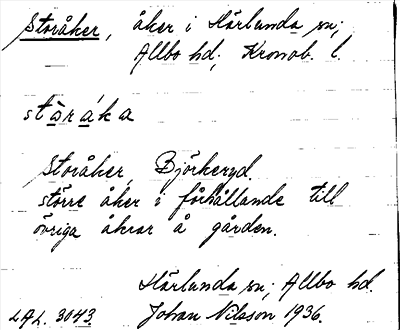 Storåker, åker i Härlunda sn;
Allbo hd; Kronob. l.
stäråka
Storåker, Björkeryd.
större åker i förhållande till
övriga åkrar å gården.
Härlunda sn; Allbo hd.
LAL. 3043. Johan Nilsson 1936.